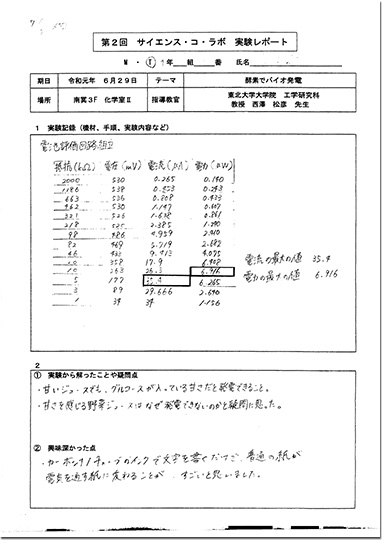 第2回 サイエンス・コ・ラボ 実験レポート
M・① 1年 組 番 氏名
期日 令和元年 6月29日 テーマ 酵素でバイオ発電
場所 南翼3F 化学室Ⅱ 指導教官 東北大学大学院 工学研究科
教授 西澤 松彦 先生
1 実験記録（機材、手順、実験内容など）
電池評価回路
抵抗(kΩ) 電圧(mV) 電流(μA) 電力(μW)
2000 530 0.265 0.140
1186 538 0.453 0.243
663 536 0.808 0.433
462 530 1.147 0.607
321 526 1.638 0.861
218 525 2.385 1.290
98 486 4.959 2.410
82 469 5.719 2.682
20 358 17.9 6.408
10 263 26.3 6.916
5 177 35.4 6.265
3 89 29.666 2.640
1 34 34 1.156
電流の最大の値 35.4
電力の最大の値 6.916
2
① 実験から解ったことや疑問点
・甘いジュースでも、グルコースが入っている甘さだと発電できること。
・甘さを感じる野菜ジュースはなぜ発電できないのかと疑問に思った。
② 興味深かった点
・カーボンナノチューブのインクで文字を書くだけで、普通の紙が
電気を通す紙に変わることが、すごいと思いました。